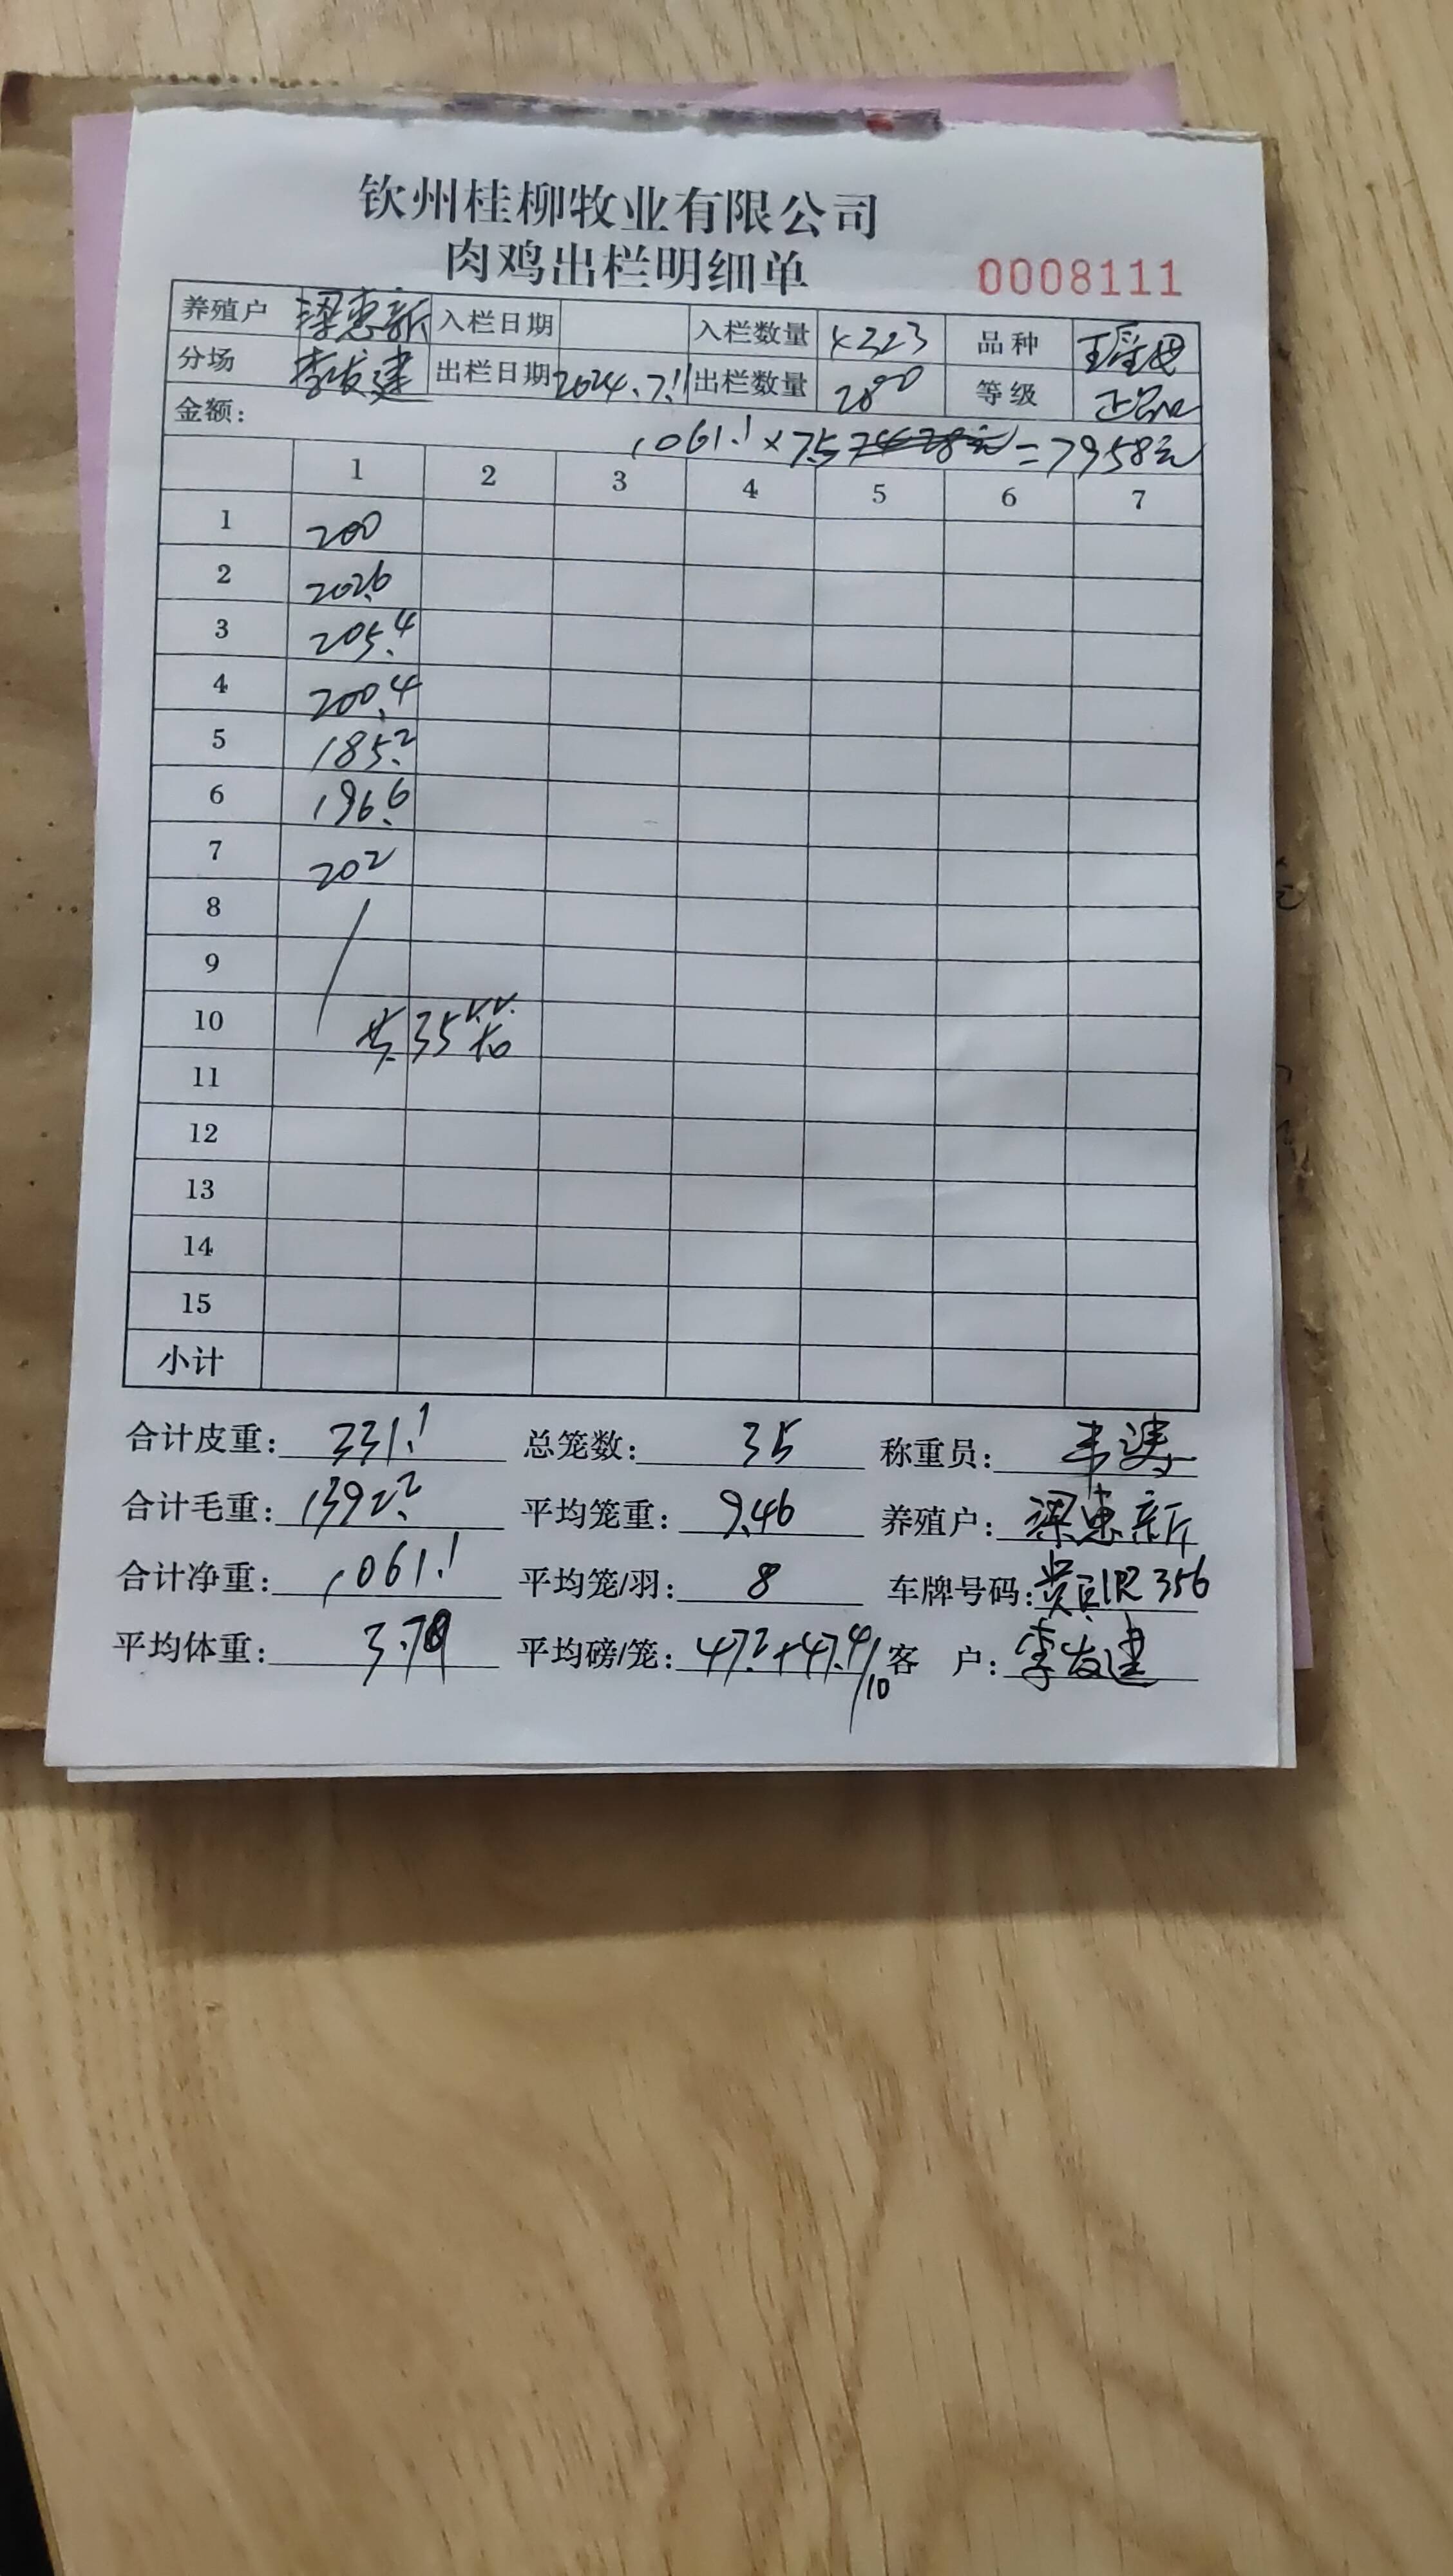 钦州桂柳牧业有限公司
肉鸡出栏明细单 0008111
养殖户 梁惠新 入栏日期 入栏数量 4323 品种
分场 李发建 出栏日期 2024.7.11 出栏数量 280 等级 正品
金额: 1061.1×7.5 =7958元
1 2 3 4 5 6 7
1 200
2 202.6
3 205.4
4 200.4
5 185.2
6 196.6
7 202
8
9
10 共35笼
11
12
13
14
15
小计
合计皮重: 331.1 总笼数: 35 称重员: 韦涛
合计毛重: 1392.2 平均笼重: 9.46 养殖户: 梁惠新
合计净重: 1061.1 平均笼/羽: 8 车牌号码: R356
平均体重: 3.79 平均磅/笼: 47.2+47.4/10 客 户: 李发建